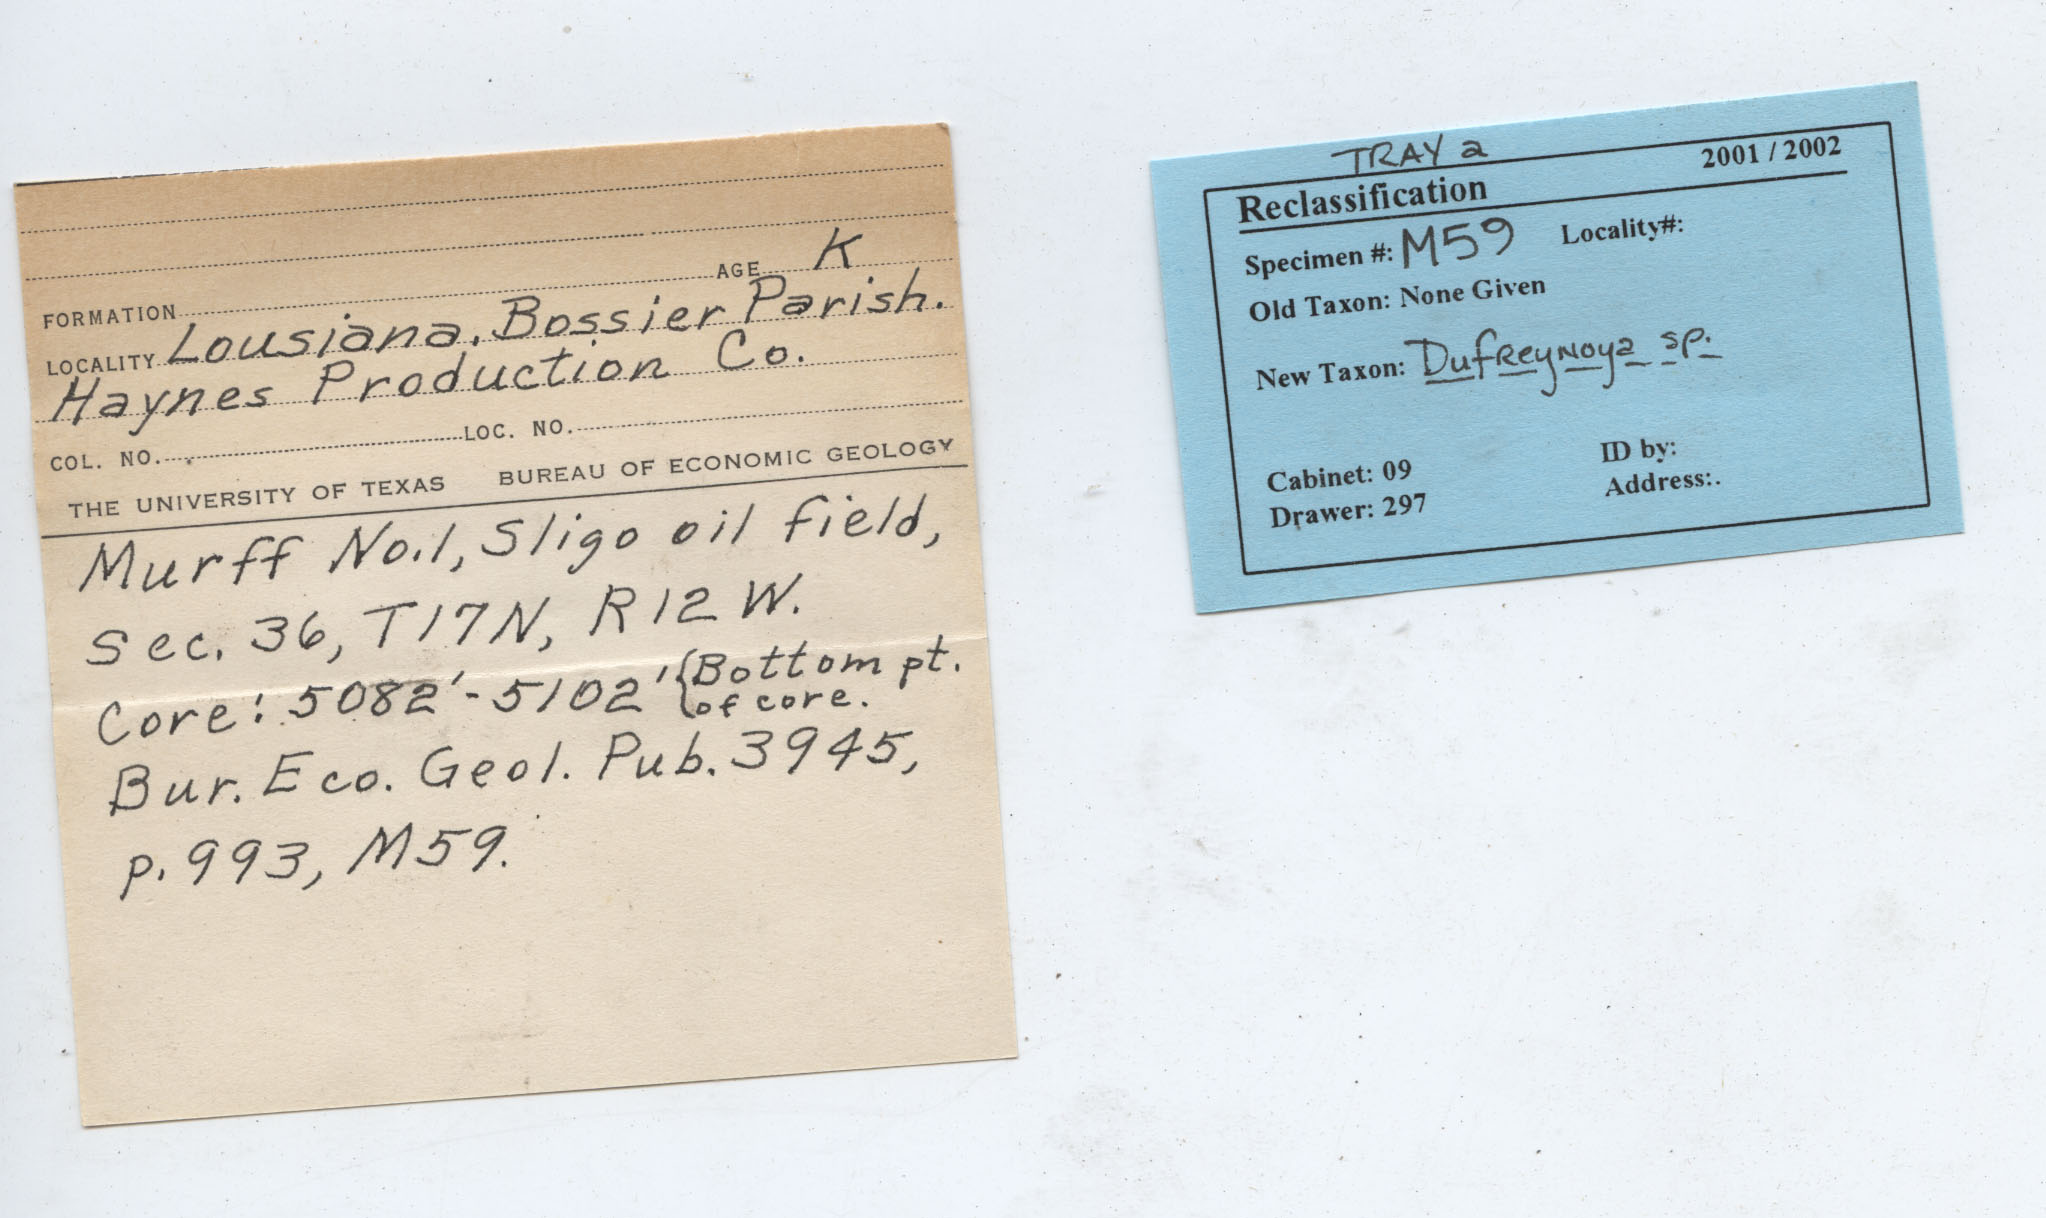 AGE K
FORMATION
LOCALITY Lousiana, Bossier Parish.
Haynes Production Co.
COL. NO. LOC. NO.
THE UNIVERSITY OF TEXAS BUREAU OF ECONOMIC GEOLOGY
Murff No.1, Sligo oil field,
Sec. 36, T17N, R12 W.
Core: 5082'-5102' {Bottom pt.
of core.
Bur. Eco. Geol. Pub. 3945,
p. 993, M59.
TRAY 2
Reclassification 2001 / 2002
Specimen #: M59 Locality#:
Old Taxon: None Given
New Taxon: Dufreynoya sp.
Cabinet: 09 ID by:
Drawer: 297 Address:.